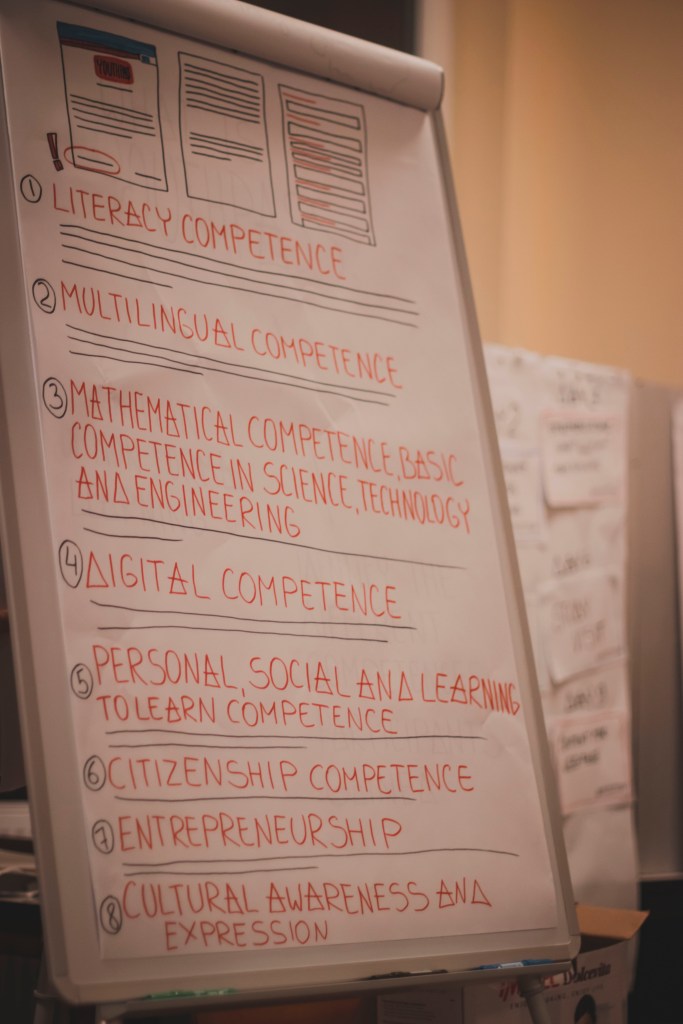 YOUTHPASS
! 
① LITERACY COMPETENCE
② MULTILINGUAL COMPETENCE
③ MATHEMATICAL COMPETENCE, BASIC
COMPETENCE IN SCIENCE, TECHNOLOGY
AND ENGINEERING
④ DIGITAL COMPETENCE
⑤ PERSONAL, SOCIAL AND LEARNING
TO LEARN COMPETENCE
⑥ CITIZENSHIP COMPETENCE
⑦ ENTREPRENEURSHIP
⑧ CULTURAL AWARENESS AND
EXPRESSION
Dolcerita